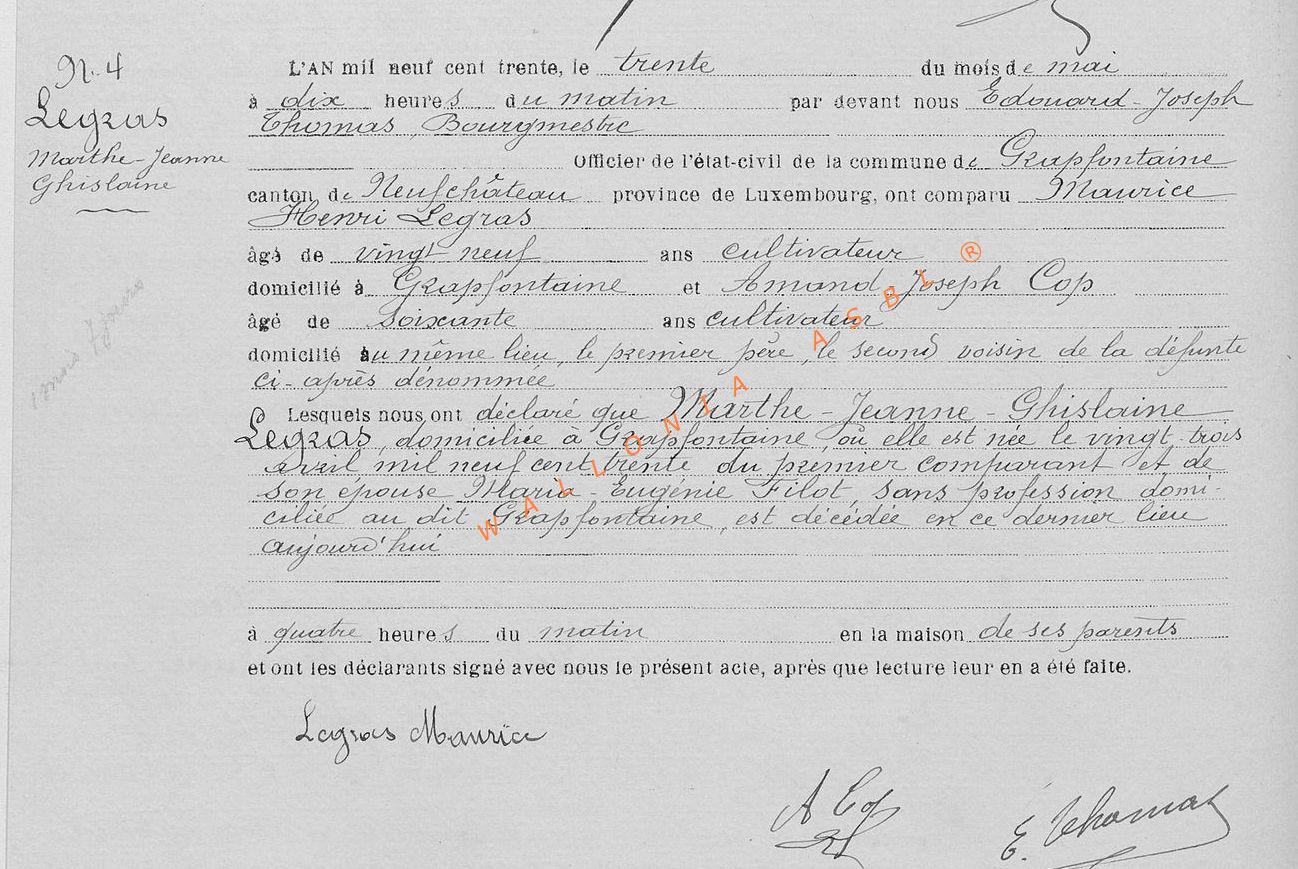 N. 4
Legras
Marthe-Jeanne
Ghislaine
1 mois 7 jours
L'AN mil neuf cent trente, le trente du mois de mai
à dix heures du matin par devant nous Edouard-Joseph
Thomas, Bourgmestre
Officier de l'état-civil de la commune de Grapfontaine
canton de Neufchâteau province de Luxembourg, ont comparu Maurice
Henri Legras
âgé de vingt neuf ans cultivateur
domicilié à Grapfontaine et Amand-Joseph Cop
âgé de soixante ans cultivateur
domicilié au même lieu, le premier père, le second voisin de la défunte
ci-après dénommée
Lesquels nous ont déclaré que Marthe-Jeanne-Ghislaine
Legras, domiciliée à Grapfontaine, où elle est née le vingt-trois
avril mil neuf cent trente du premier comparant et de
son épouse Maria-Eugénie Filot, sans profession domi-
ciliée au dit Grapfontaine, est décédée en ce dernier lieu
aujourd'hui
à quatre heures du matin en la maison de ses parents
et ont les déclarants signé avec nous le présent acte, après que lecture leur en a été faite.
Legras Maurice
A Cop
E. Thomas
WALLONIA ASBL ®